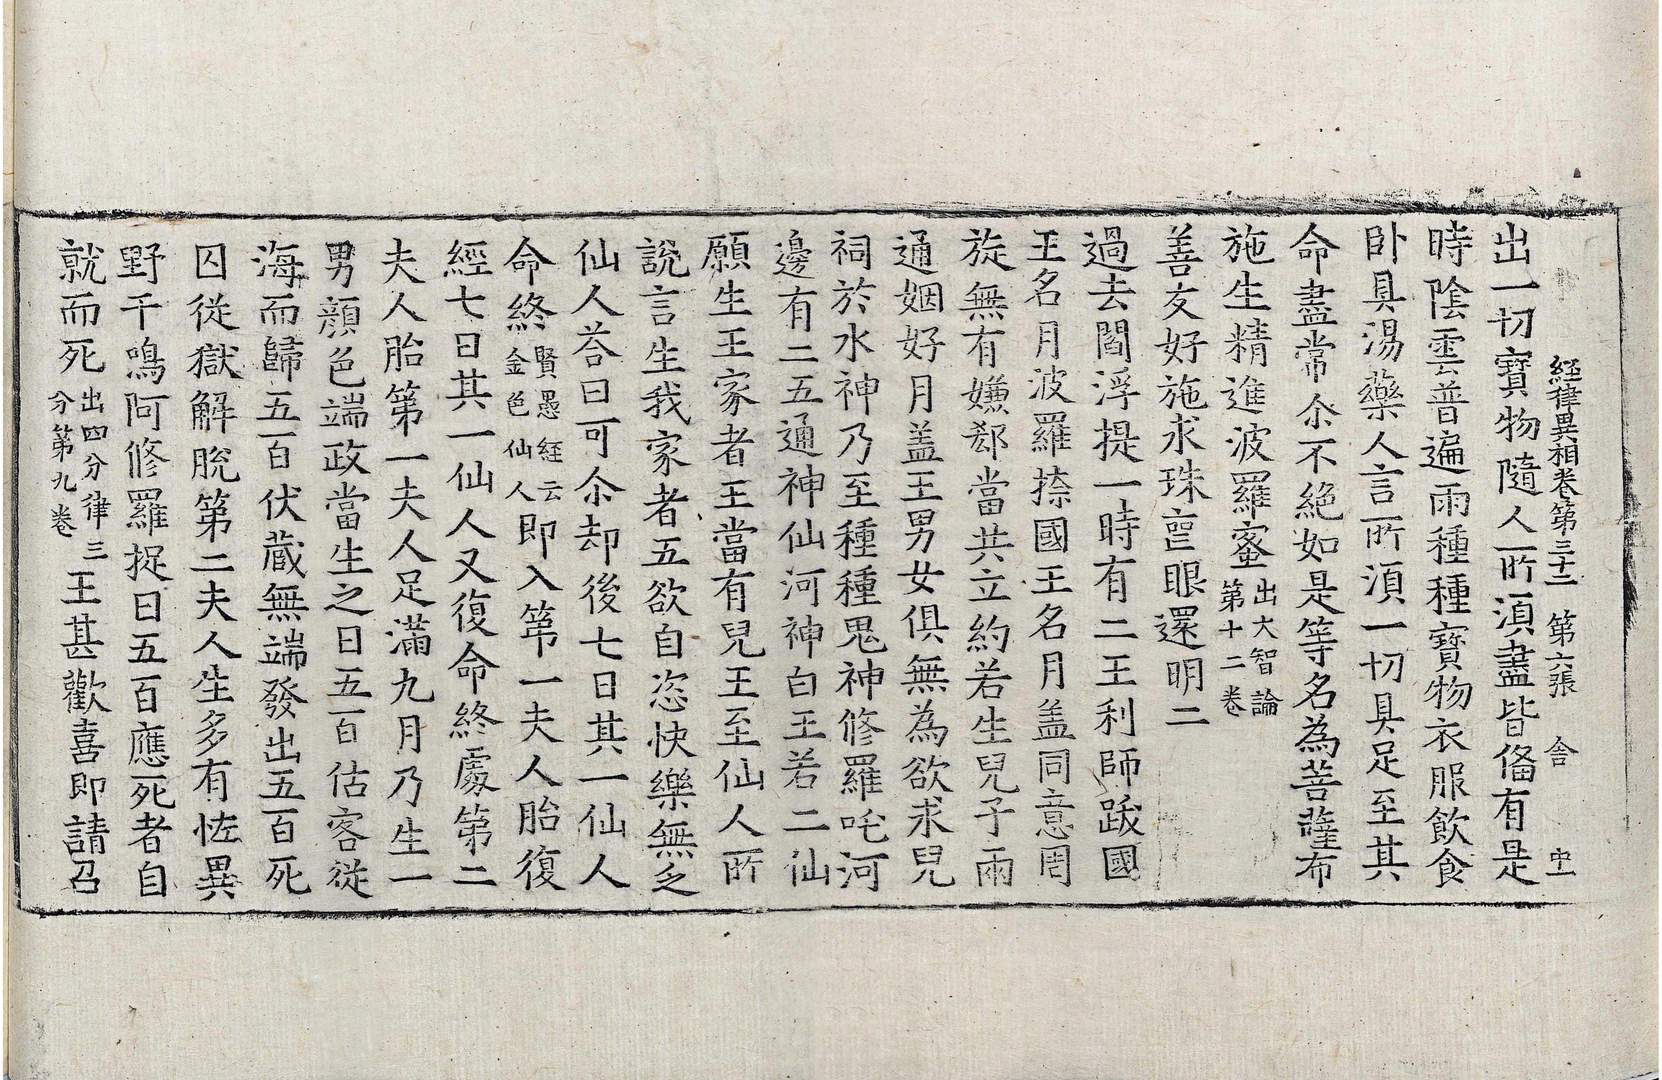 経律異相卷第三十二 第六張 舎
出一切寶物隨人所湏盡皆俻有是
時隂雲普遍雨種種寶物衣服飲食
卧具湯藥人言所湏一切具足至其
命盡常尒不絕如是等名為菩薩布
施生精進波羅蜜出大智論第十二卷
善友好施求珠䘮眼還明二
過去閻浮提一時有二王利師跋國
王名月波羅㮈國王名月盖同意周
旋無有嫌郄當共立約若生兒子兩
通姻好月盖王男女俱無為欲求兒
祠於水神乃至種種鬼神修羅吒河
邊有二五通神仙河神白王若二仙
願生王家者王當有兒王至仙人所
說言生我家者五欲自恣快樂無乏
仙人荅曰可尒却後七日其一仙人
命終賢愚経云金色仙人即入第一夫人胎復
經七日其一仙人又復命終處第二
夫人胎第一夫人足滿九月乃生一
男顔色端政當生之日五百估客從
海而歸五百伏藏無端發出五百死
囚從獄解脫第二夫人生多有恠異
野干鳴阿修羅捉日五百應死者自
就而死出四分律三分第九卷王甚歡喜即請召